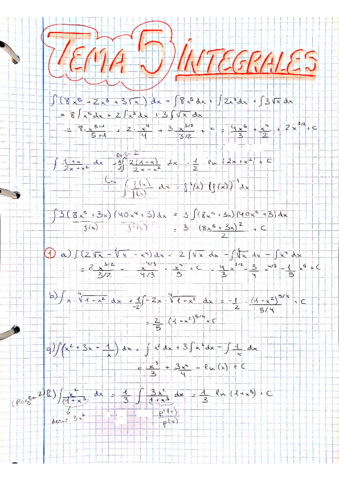 TEMA 5 INTEGRALES
∫(8x⁵ + 2x³ + 3√x) dx = ∫8x⁵dx + ∫2x³dx + ∫3√x dx
= 8∫x⁵dx + 2∫x³dx + 3∫√x dx
= 8·x⁵⁺¹/5+1 + 2·x⁴/4 + 3·x^3/2/3/2 + C = 4x⁶/3 + x⁴/2 + 2x^3/2 + C
∫ 1+x/2x+x² dx = 1/2 ∫ 2(1+x)/2x+x² dx = 1/2 ln(2x+x²) + C
∫ f'(x)/f(x) dx = f'(x) (f(x))⁻¹ dx
∫3(8x⁵+3x)(40x⁴+3)dx = 3∫(8x⁵+3x)(40x⁴+3)dx
f(x) f'(x) = 3·(8x⁵+3x)²/2 + C
① a) ∫(2√x - ∛x - x⁴)dx = 2∫√x dx - ∫∛x dx - ∫x⁴dx
= 2x^3/2/3/2 - x^4/3/4/3 - x⁵/5 + C = 4/3 x^3/2 - 3/4 x^4/3 - 1/5 x⁵ + C
b) ∫x·∜1-x² dx = 1/-2 ∫-2x·∜1-x² dx = -1/2·(1-x²)^5/4/5/4 + C
= 2/5·(1-x²)^5/4 + C
g) ∫(x² + 3x - 1/x) dx = ∫x²dx + 3∫x dx - ∫1/x dx
= x³/3 + 3x²/4 - ln(x) + C
h) ∫ x²/1+x³ dx = 1/3 ∫ 3x²/1+x³ dx = 1/3 ln(1+x³) + C
3x² f'(x)/f(x)